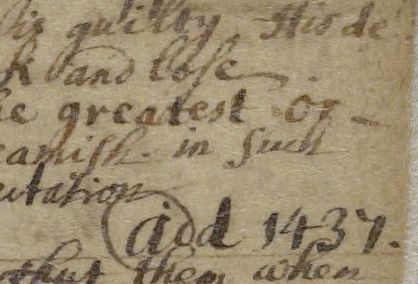 is guilty. His de
k and lose
he greatest Og-
eamish. in such
utation
add 1437.
thut then when